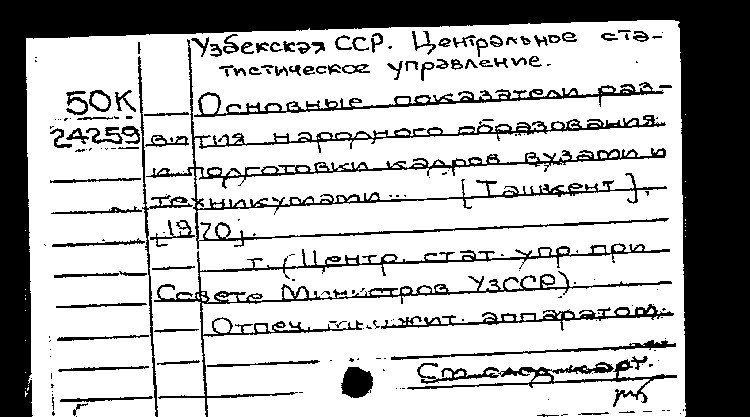 Узбекская ССР. Центральное ста-
тистическое управление.
50К
24259
Основные показатели раз-
вития народного образования
и подготовки кадров вузами и
техникумами... [Ташкент],
[1970].
т. (Центр. стат. упр. при
Совете Министров УзССР).
Отпеч. множит. аппаратом.
См. след. карт.